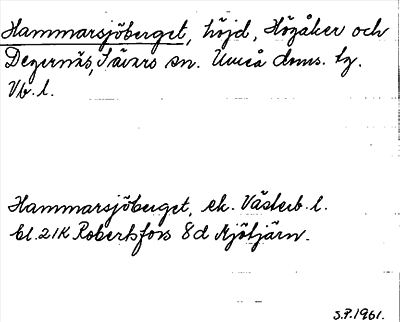 Hammarsjöberget, höjd, Högåker och
Degernäs, Sävars sn. Umeå doms. tg.
Vb. l.
Hammarsjöberget, ek. Västerb. l.
bl. 21K Robertsfors 8d Mjötjärn.
S.P. 1961.